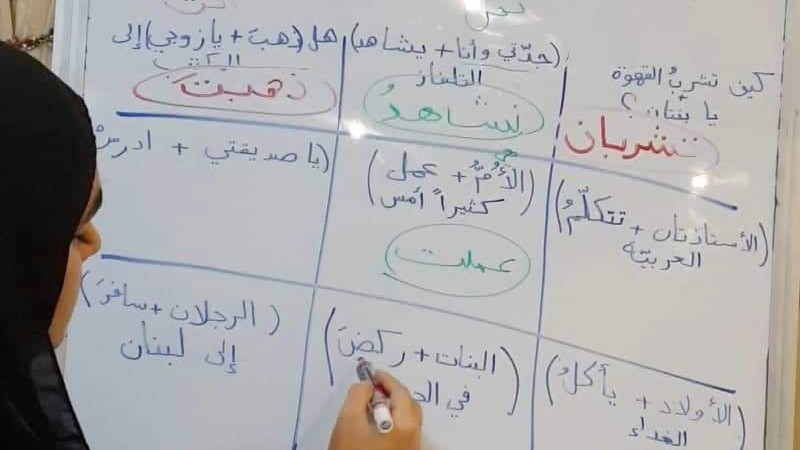 كيف تشربُ القهوة
يا بنتان ؟
تشربان
نحن
(جدّتي وأنا + يشاهد)
التلفاز
نشاهدُ
هل (ذهبَ + يا زوجي) إلى
ذهبتَ
(الأستاذتان + تتكلّمُ)
العربيّة
هي
(الأُمُّ + عمل)
كثيراً أمس
عملت
(يا صديقتي + ادرسْ
(الأولاد + يأكلُ)
الغداء
(البنات + ركضَ)
في
(الرجلان + سافرَ)
إلى لبنان